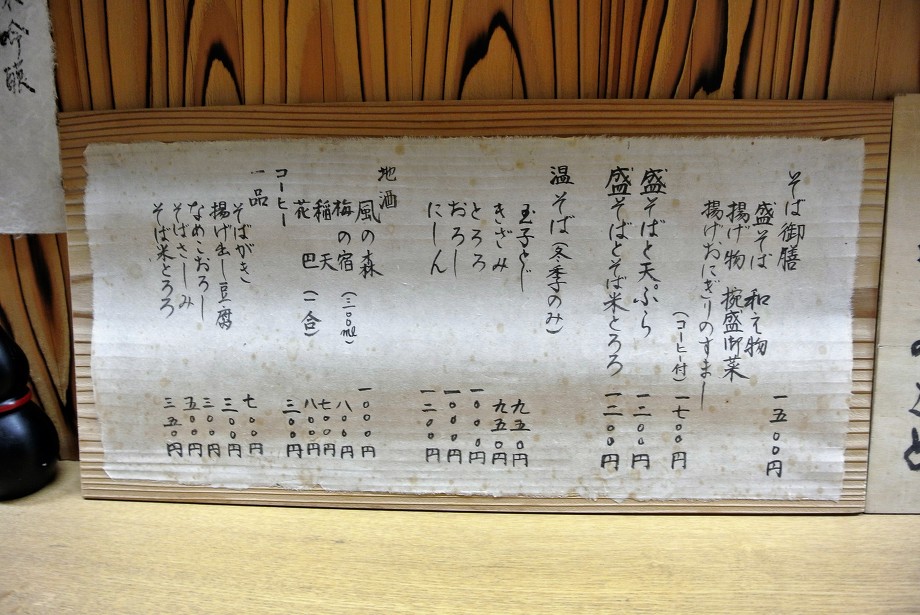 そば御膳 一五〇〇円
盛そば 和え物
揚げ物 椀盛 御菜
揚げおにぎりのすまし
(コーヒー付) 一七〇〇円
盛そばと天ぷら 一二〇〇円
盛そばとそば米とろろ 一二〇〇円
温そば(冬季のみ)
玉子とじ 九五〇円
きざみ 九五〇円
とろろ 一〇〇〇円
おろし 一〇〇〇円
にしん 一二〇〇円
地酒
風の森 一〇〇〇円
梅の宿(三〇〇ml) 八〇〇円
稲天 七〇〇円
花巴(一合) 八〇〇円
コーヒー 三〇〇円
一品
そばがき 七〇〇円
揚げ出し豆腐 三〇〇円
なめこおろし 三〇〇円
そばさしみ 五〇〇円
そば米とろろ 三五〇円
吟醸